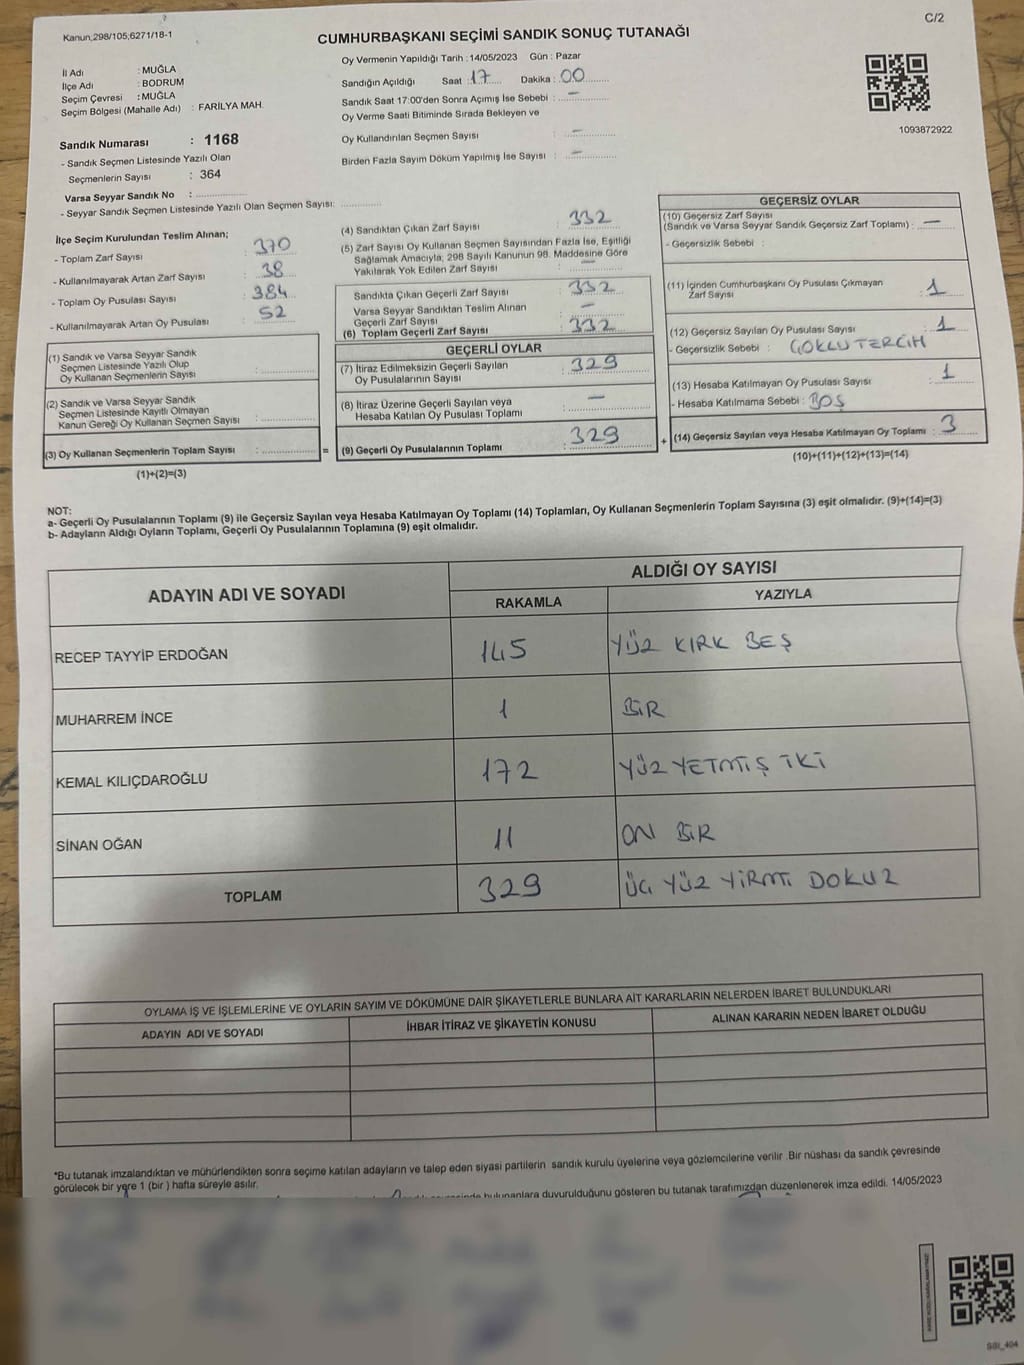 C/2
Kanun;298/105;6271/18-1
CUMHURBAŞKANI SEÇİMİ SANDIK SONUÇ TUTANAĞI
İl Adı : MUĞLA
İlçe Adı : BODRUM
Seçim Çevresi : MUĞLA
Seçim Bölgesi (Mahalle Adı) : FARİLYA MAH.
Sandık Numarası : 1168
- Sandık Seçmen Listesinde Yazılı Olan
Seçmenlerin Sayısı : 364
Varsa Seyyar Sandık No :
- Seyyar Sandık Seçmen Listesinde Yazılı Olan Seçmen Sayısı:
Oy Vermenin Yapıldığı Tarih : 14/05/2023 Gün : Pazar
Sandığın Açıldığı Saat : 17 Dakika : 00
Sandık Saat 17:00'den Sonra Açımış İse Sebebi : —
Oy Verme Saati Bitiminde Sırada Bekleyen ve
Oy Kullandırılan Seçmen Sayısı : —
Birden Fazla Sayım Döküm Yapılmış İse Sayısı : —
1093872922
İlçe Seçim Kurulundan Teslim Alınan;
- Toplam Zarf Sayısı : 370
- Kullanılmayarak Artan Zarf Sayısı : 38
- Toplam Oy Pusulası Sayısı : 384
- Kullanılmayarak Artan Oy Pusulası : 52
(1) Sandık ve Varsa Seyyar Sandık
Seçmen Listesinde Yazılı Olup
Oy Kullanan Seçmenlerin Sayısı :
(2) Sandık ve Varsa Seyyar Sandık
Seçmen Listesinde Kayıtlı Olmayan
Kanun Gereği Oy Kullanan Seçmen Sayısı :
(3) Oy Kullanan Seçmenlerin Toplam Sayısı :
(1)+(2)=(3)
(4) Sandıktan Çıkan Zarf Sayısı : 332
(5) Zarf Sayısı Oy Kullanan Seçmen Sayısından Fazla İse, Eşitliği
Sağlamak Amacıyla; 298 Sayılı Kanunun 98. Maddesine Göre
Yakılarak Yok Edilen Zarf Sayısı : —
Sandıkta Çıkan Geçerli Zarf Sayısı : 332
Varsa Seyyar Sandıktan Teslim Alınan
Geçerli Zarf Sayısı : —
(6) Toplam Geçerli Zarf Sayısı : 332
GEÇERLİ OYLAR
(7) İtiraz Edilmeksizin Geçerli Sayılan
Oy Pusulalarının Sayısı : 329
(8) İtiraz Üzerine Geçerli Sayılan veya
Hesaba Katılan Oy Pusulası Toplamı : —
= (9) Geçerli Oy Pusulalarının Toplamı : 329
GEÇERSİZ OYLAR
(10) Geçersiz Zarf Sayısı
(Sandık ve Varsa Seyyar Sandık Geçersiz Zarf Toplamı) : —
- Geçersizlik Sebebi :
(11) İçinden Cumhurbaşkanı Oy Pusulası Çıkmayan
Zarf Sayısı : 1
(12) Geçersiz Sayılan Oy Pusulası Sayısı : 1
- Geçersizlik Sebebi : ÇOKLU TERCİH
(13) Hesaba Katılmayan Oy Pusulası Sayısı : 1
- Hesaba Katılmama Sebebi : BOŞ
+ (14) Geçersiz Sayılan veya Hesaba Katılmayan Oy Toplamı : 3
(10)+(11)+(12)+(13)=(14)
NOT:
a- Geçerli Oy Pusulalarının Toplamı (9) ile Geçersiz Sayılan veya Hesaba Katılmayan Oy Toplamı (14) Toplamları, Oy Kullanan Seçmenlerin Toplam Sayısına (3) eşit olmalıdır. (9)+(14)=(3)
b- Adayların Aldığı Oyların Toplamı, Geçerli Oy Pusulalarının Toplamına (9) eşit olmalıdır.
ADAYIN ADI VE SOYADI ALDIĞI OY SAYISI
RAKAMLA YAZIYLA
RECEP TAYYİP ERDOĞAN 145 YÜZ KIRK BEŞ
MUHARREM İNCE 1 BİR
KEMAL KILIÇDAROĞLU 172 YÜZ YETMİŞ İKİ
SİNAN OĞAN 11 ON BİR
TOPLAM 329 ÜÇ YÜZ YİRMİ DOKUZ
OYLAMA İŞ VE İŞLEMLERİNE VE OYLARIN SAYIM VE DÖKÜMÜNE DAİR ŞİKAYETLERLE BUNLARA AİT KARARLARIN NELERDEN İBARET BULUNDUKLARI
ADAYIN ADI VE SOYADI İHBAR İTİRAZ VE ŞİKAYETİN KONUSU ALINAN KARARIN NEDEN İBARET OLDUĞU
*Bu tutanak imzalandıktan ve mühürlendikten sonra seçime katılan adayların ve talep eden siyasi partilerin sandık kurulu üyelerine veya gözlemcilerine verilir .Bir nüshası da sandık çevresinde
görülecek bir yere 1 (bir ) hafta süreyle asılır.
bulunanlara duyurulduğunu gösteren bu tutanak tarafımızdan düzenlenerek imza edildi. 14/05/2023
SSI_404